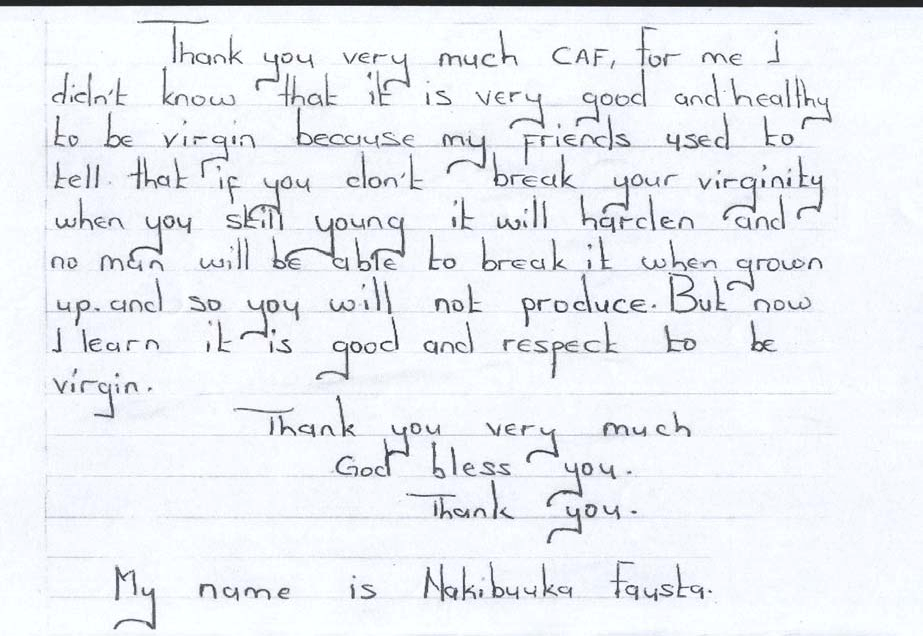 Thank you very much CAF, for me I
didn't know that it is very good and healthy
to be virgin because my friends used to
tell. that if you don't break your virginity
when you still young it will harden and
no man will be able to break it when grown
up. and so you will not produce. But now
I learn it is good and respect to be
virgin.
Thank you very much
God bless you.
Thank you.
My name is Nakibuuka Fausta.